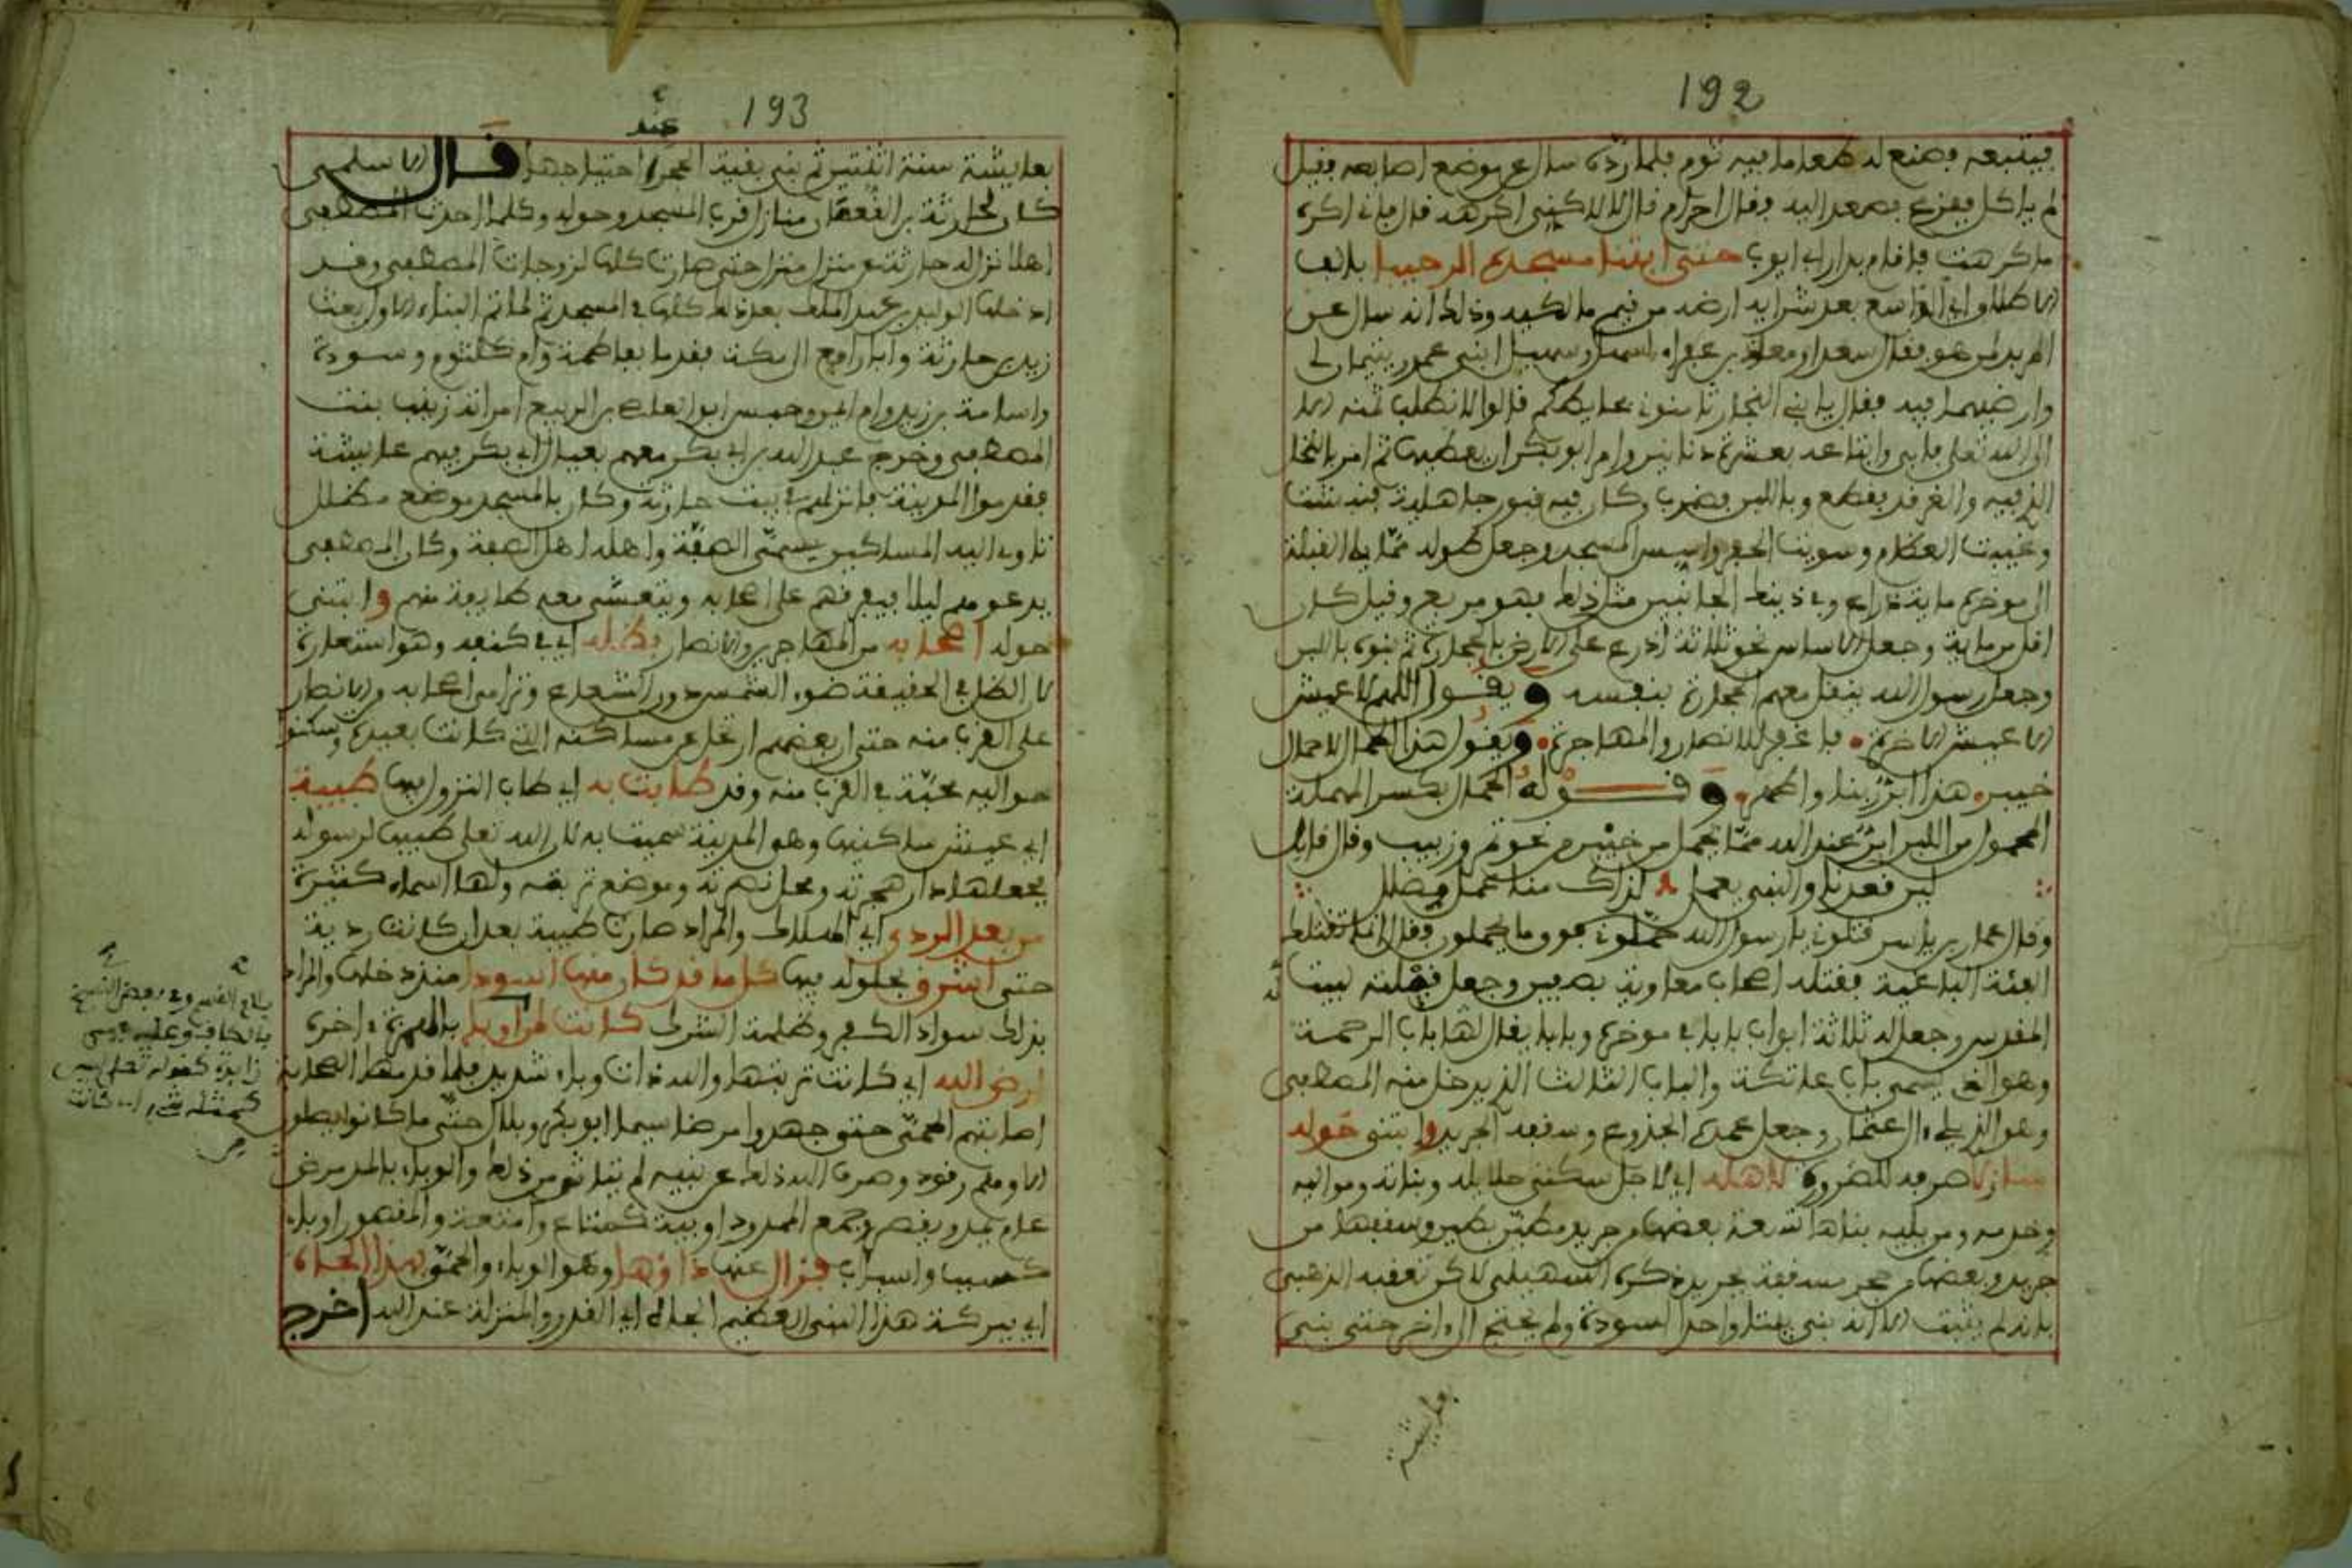 192
فيتبعه فصنع له طعاما فيه ثوم فلما رده سال عن موضع اصابعه فقيل
لم ياكل ففزع فصعد اليه وقال احرام قال لا لاكنني اكرهه قال فاني اكره
ما كرهت فاقام بدار ابي ايوب حتى ابتنا مسجده الرحيبا بالف
الاطلاق اي الواسع بعد شرايه ارضه من قيم مالكيه وذلك انه سال عن
المربد لمن هو فقال سعد او معاذ بن عفراء لسهل وسهيل ابني عمرو يتيمان لي
وارضيهما فيه فقال يا بني النجار ثامنوني بحايطكم قالوا لا نطلب ثمنه الا
الى الله تعلى فابى وابتاعه بعشرة دنانير وامر ابو بكر ان يعطيها ثم امر بالنخل
الذي فيه والغرقد فقطع وباللبن فضرب وكان فيه قبور جاهلية فنبشت
وغيبت العظام وسويت الحفر واسس المسجد وجعل طوله مما يلي القبلة
الى موخره ماية ذراع وفي ذينك الجانبين مثل ذلك فهو مربع وقيل كان
اقل من ماية وجعل الاساس نحو ثلاثة اذرع على الارض بالحجارة ثم بنوه باللبن
وجعل رسول الله ينقل معهم الحجارة بنفسه ويقول اللهم لا عيش
الا عيش الاخرة • فاغفر للانصار والمهاجرة • ويقول هذا الحمال لا حمال
خيبر • هذا ابر ربنا واطهر • وقوله الحمال بكسر المهملة
المحمول من اللبن ابر عند الله مما يحمل من خيبر من نحو تمر وزبيب وقال قايل
لين قعدنا والنبي يعمل لذاك منا عمل مضلل
وقال عمار بن ياسر قتلوني يا رسول الله يحملون فوق ما يحملون وقال انما تقتلك
الفئة الباغية فقتله اصحاب معاوية بصفين وجعل قبلته لبيت
المقدس وجعل له ثلاثة ابواب بابا في موخره وبابا يقال لها باب الرحمة
وهو الذي يسمى باب عاتكة والباب الثالث الذي يدخل منه المصطفى
وهو الذي يلي ال عثمان وجعل عمده الجذوع وسقفه الجريد وابتنى حوله
منازلا صرفه للضرورة لاهله اي لاجل سكنى حلايله وبناته ومواليه
وخدمه ومن يليه بناها تسعة بعضها من جريد مطين بطين وسقفها من
جريد وبعضها من حجر مسقفة بجريد ذكره السهيلي لاكن تعقبه الذهبي
بانه لم يثبت الا انه بنى بيتا واحدا لسودة ولم يحتج الى اخر حتى بنى
بعايشة
193
عند
بعايشة سنة اثنتين ثم بنى بقية الحجر احتياجها قال الاسلمي
كان لحارثة بن النعمان منازل قرب المسجد وحوله وكلما احدث المصطفى
اهلا نزل له حارثة عن منزل منزل حتى صارت كلها لزوجات المصطفى وقد
ادخلها الوليد بن عبد الملك بعد ذلك كلها في المسجد ثم لما تم البناء الاول بعث
زيد بن حارثة وابا رافع الى مكة فقدما بفاطمة وام كلثوم وسودة
واسامة بن زيد وام ايمن وحبس ابو العاص بن الربيع امراته زينب بنت
المصطفى وخرج عبد الله بن ابي بكر معهم بعيال ابي بكر فيهم عايشة
فقدموا المدينة فانزلهم في بيت حارثة وكان بالمسجد موضع مظلل
تاوي اليه المساكين يسمى الصفة واهله اهل الصفة وكان المصطفى
يدعوهم ليلا فيفرقهم على اصحابه ويتعشى معه طايفة منهم وابتنى
حوله اصحابه من المهاجرين والانصار بظله اي في كنفه وهو استعارة
لان الظل في الحقيقة ضوء الشمس دون الشعاع وتزاحم اصحابه والانصار
على القرب منه حتى ان بعضهم ارتحل عن مساكنه التي كانت بعيدة وسكنوا
حواليه محبة في القرب منه وقد طابت به اي طاب النزول بها طيبة
اي عيش ساكنيها وهو المدينة سميت به لان الله تعلى طيبها لرسوله
بجعلها دار هجرته ومحل نصرته وموضع تربته ولها اسماء كثيرة
من بعد الردى اي الهلاك والمراد صارت طيبة بعد ان كانت ردية
حتى اشرق بحلوله بها كل ما قد كان منها اسودا منذ دخلها والمراد
بذلك سواد الكفر وظلمة الشرك كانت لمن اوبا بالهمزة اخره
ارض الله اي كانت تربتها والله ذات وباء شديد فلما قدمها الصحابة
اصابتهم الحمى حتى جهدوا مرضا سيما ابو بكر وبلال حتى ما كانوا يصلون
الا وهم رقود وصرف الله ذلك عن نبيه لم يتاثر من ذلك والوباء بالمد مرض
عام يمد ويقصر وجمع الممدود اوبية كمتاع وامتعة والمقصور اوباء
كسبب واسباب فزال عنها داؤها وهو الوباء والحمى بهذا الجاه
اي ببركة هذا النبي العظيم الجاه اي القدر والمنزلة عند الله اخرج
وفي بعض النسخ
زايدة كقوله تعلى ليس
كمثله شيء